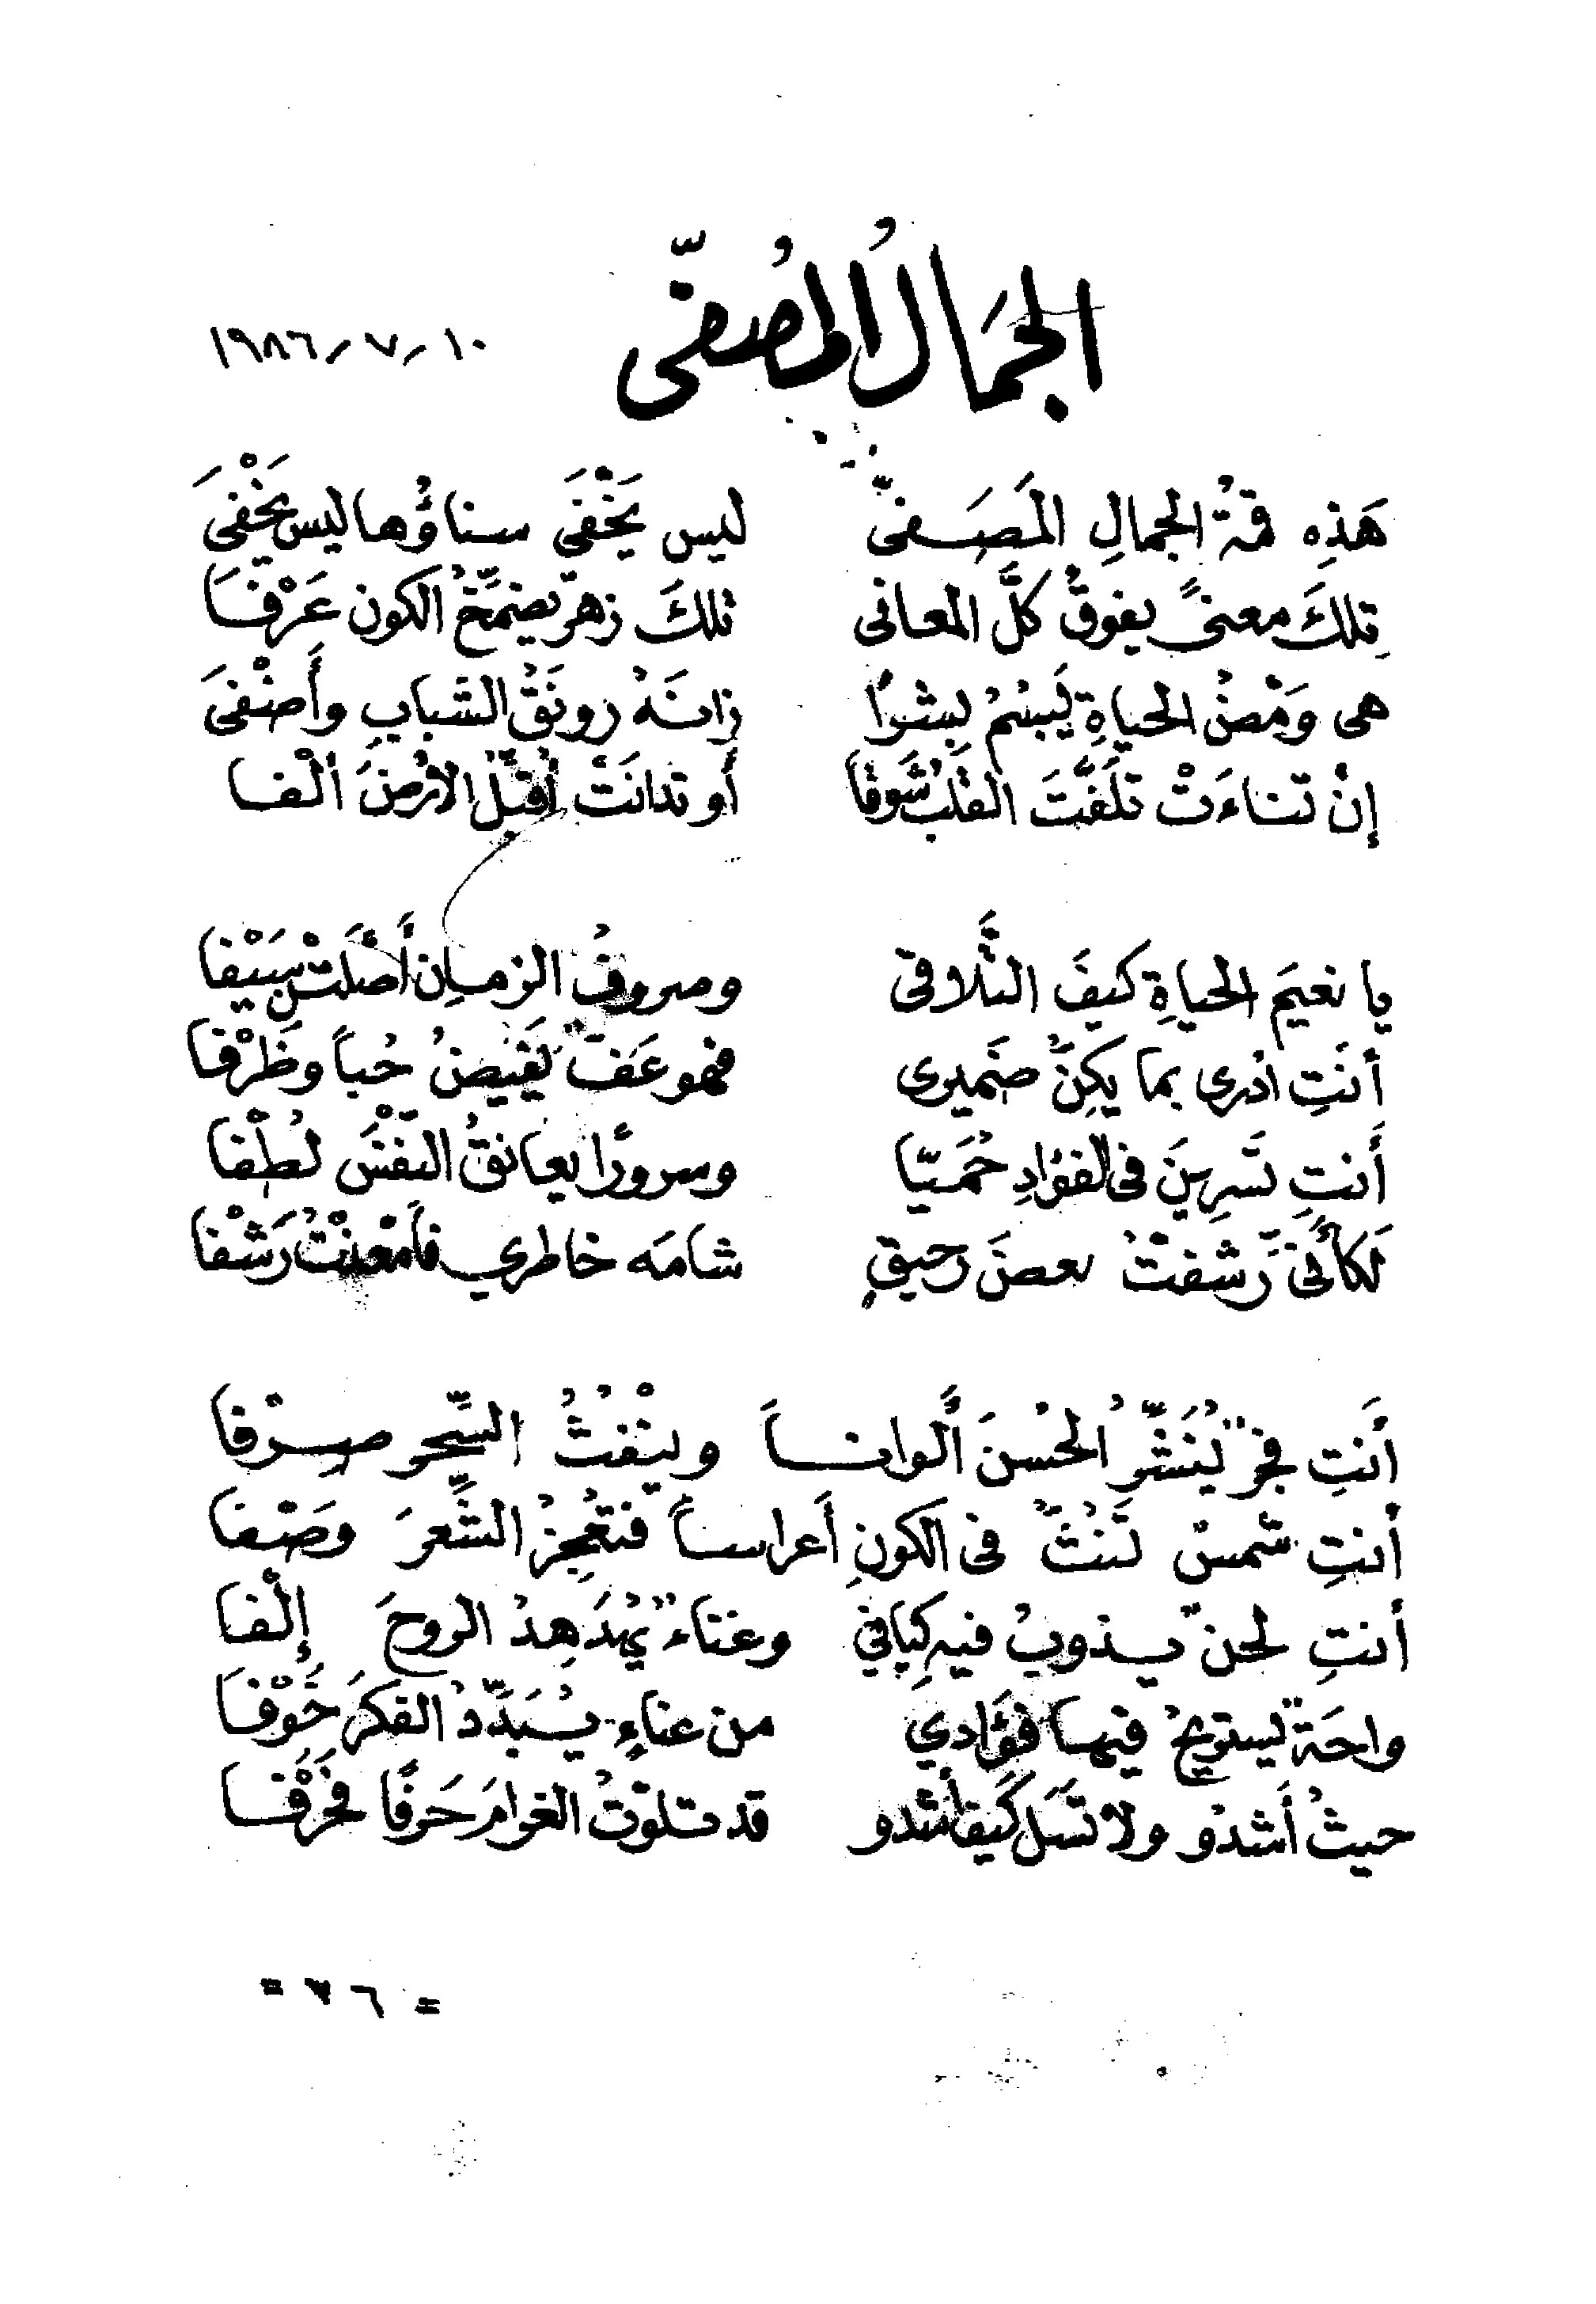 الجَمَالُ المُصفَّى
١٠ / ٧ / ١٩٨٦
هَذِه قمةُ الجمالِ المَصَفىّ ليس يَخْفَى سناؤُها ليس يَخْفىَ
تِلكَ معنىً يفوقُ كلَّ المعانى تلكَ زهرٌ يضمِّخُ الكون عَرْفَا
هى وَمْضُ الحياةِ يَبسُمُ بِشرًا زانَهُ رونَقُ الشبابِ وأَضْفىَ
إنْ تناءَتْ تلَفَّتَ القلبُ شَوقاً أو تدانَتْ أُقبِّلُ الأرضَ ألْفا
يا نعيَم الحياةِ كيفَ التَّلاقى وصروفُ الزمانِ أَصْلَتْنَ سَيْفا
أنتِ أدْرى بما يكِنُّ ضَميرى فهو عَفٌّ يَفيضُ حُباً وظَرْفا
أَنتِ تَسرِينَ فى الفؤادِ حُمَيّا وسرورًا يعانقُ النَّفْسَ لُطْفا
لَكأَنىّ رَشفتُ بعضَ رحيقٍ شامَه خاطري فأَمْعنْتُ رَشْفا
أَنتِ فجرٌ يُنَشِّرُ الحُسْنَ أَلوانــاً وينْفُثُ السِّحر صِرْفا
أنتِ شمسٌ تَنُثُّ فى الكونِ أَعراساً فتُعْجِزُ الشِّعرَ وصْفا
أنتِ لحنٌ يــذوبُ فيه كِيانِي وغناءٌ يُهَدْهِدُ الروحَ إلْفا
واحَةٌ يستريحُ فيها فؤَادي من عناءٍ يُبَدِّدُ الفكرَ خَوْفَا
حيثُ أَشدُو ولا تَسَل كَيفَ أشدو قد تلوْتُ الغرامَ حَرفًا فحَرْفا
= ٢٦ =